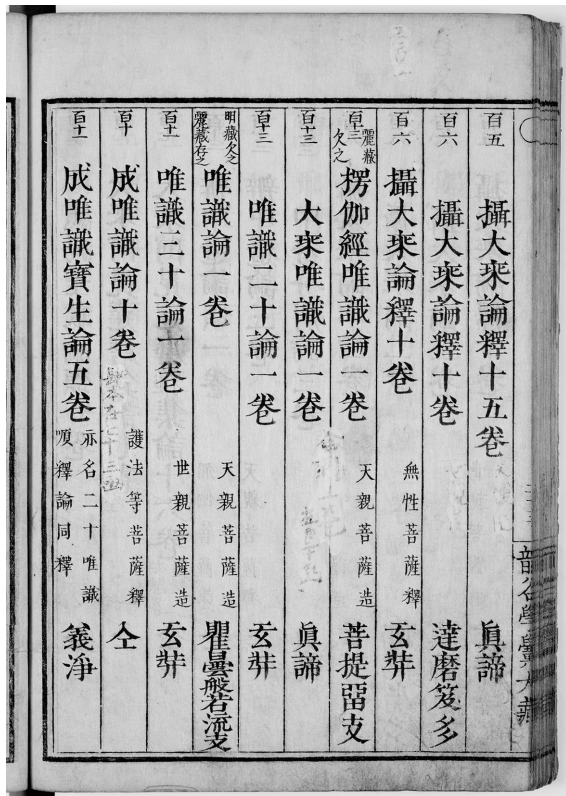 百五 攝大乗論釋十五卷 眞諦
百六 攝大乗論釋十卷 達磨笈多
百六 攝大乗論釋十卷 無性菩薩釋 玄奘
百十三 麗藏欠之 楞伽經唯識論一卷 天親菩薩造 菩提畱支
百十三 大乗唯識論一卷 眞諦
百十三 唯識二十論一卷 玄奘
明藏欠之 麗藏存之 唯識論一卷 天親菩薩造 瞿曇般若流支
百十一 唯識三十論一卷 世親菩薩造 玄奘
百十 成唯識論十卷 護法等菩薩釋 仝
百十一 成唯識寶生論五卷 亦名二十唯識順釋論同釋 義淨